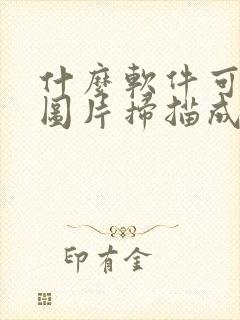 什麼軟件可
圖片掃描成
印有金